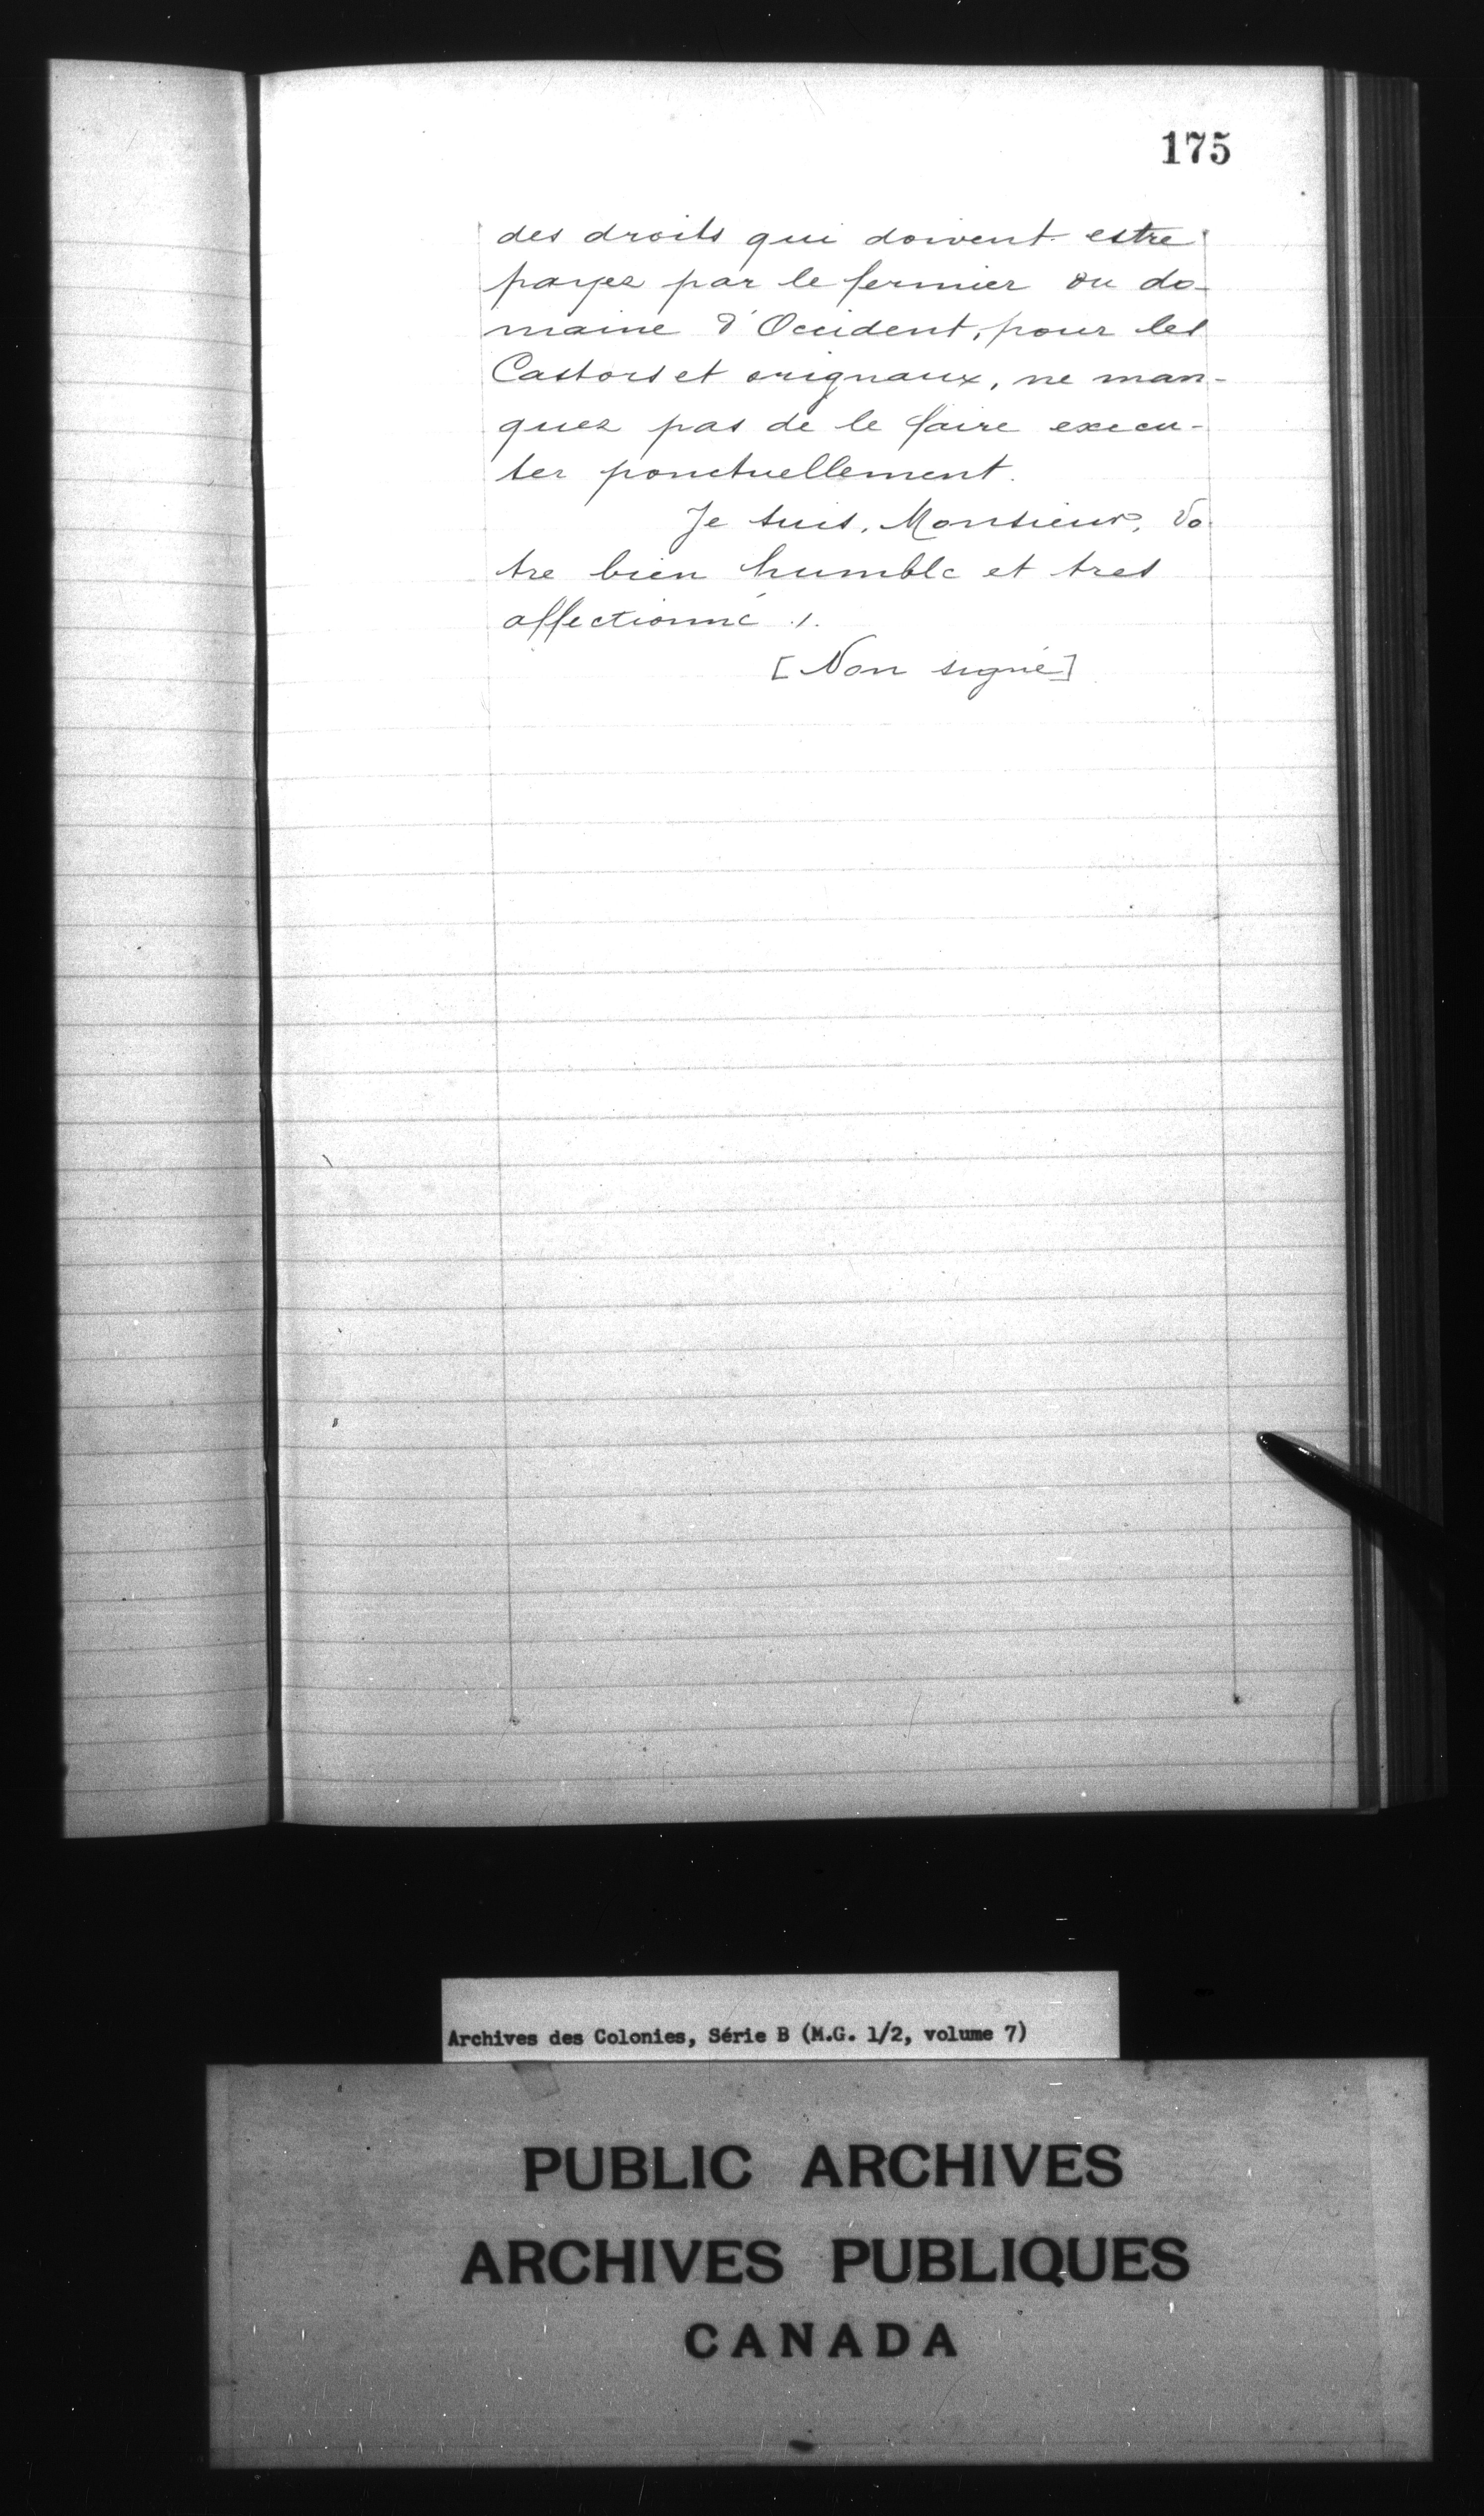 175
des droits qui doivent estre
payez par le fermier du do-
maine d'Occident, pour les
Castors et orignaux, ne man-
quez pas de le faire execu-
ter ponctuellement.
Je suis, Monsieur, Vo
tre bien humble et tres
affectionné ./.
[Non signé]
Archives des Colonies, Série B (M.G. 1/2, volume 7)
PUBLIC ARCHIVES
ARCHIVES PUBLIQUES
CANADA